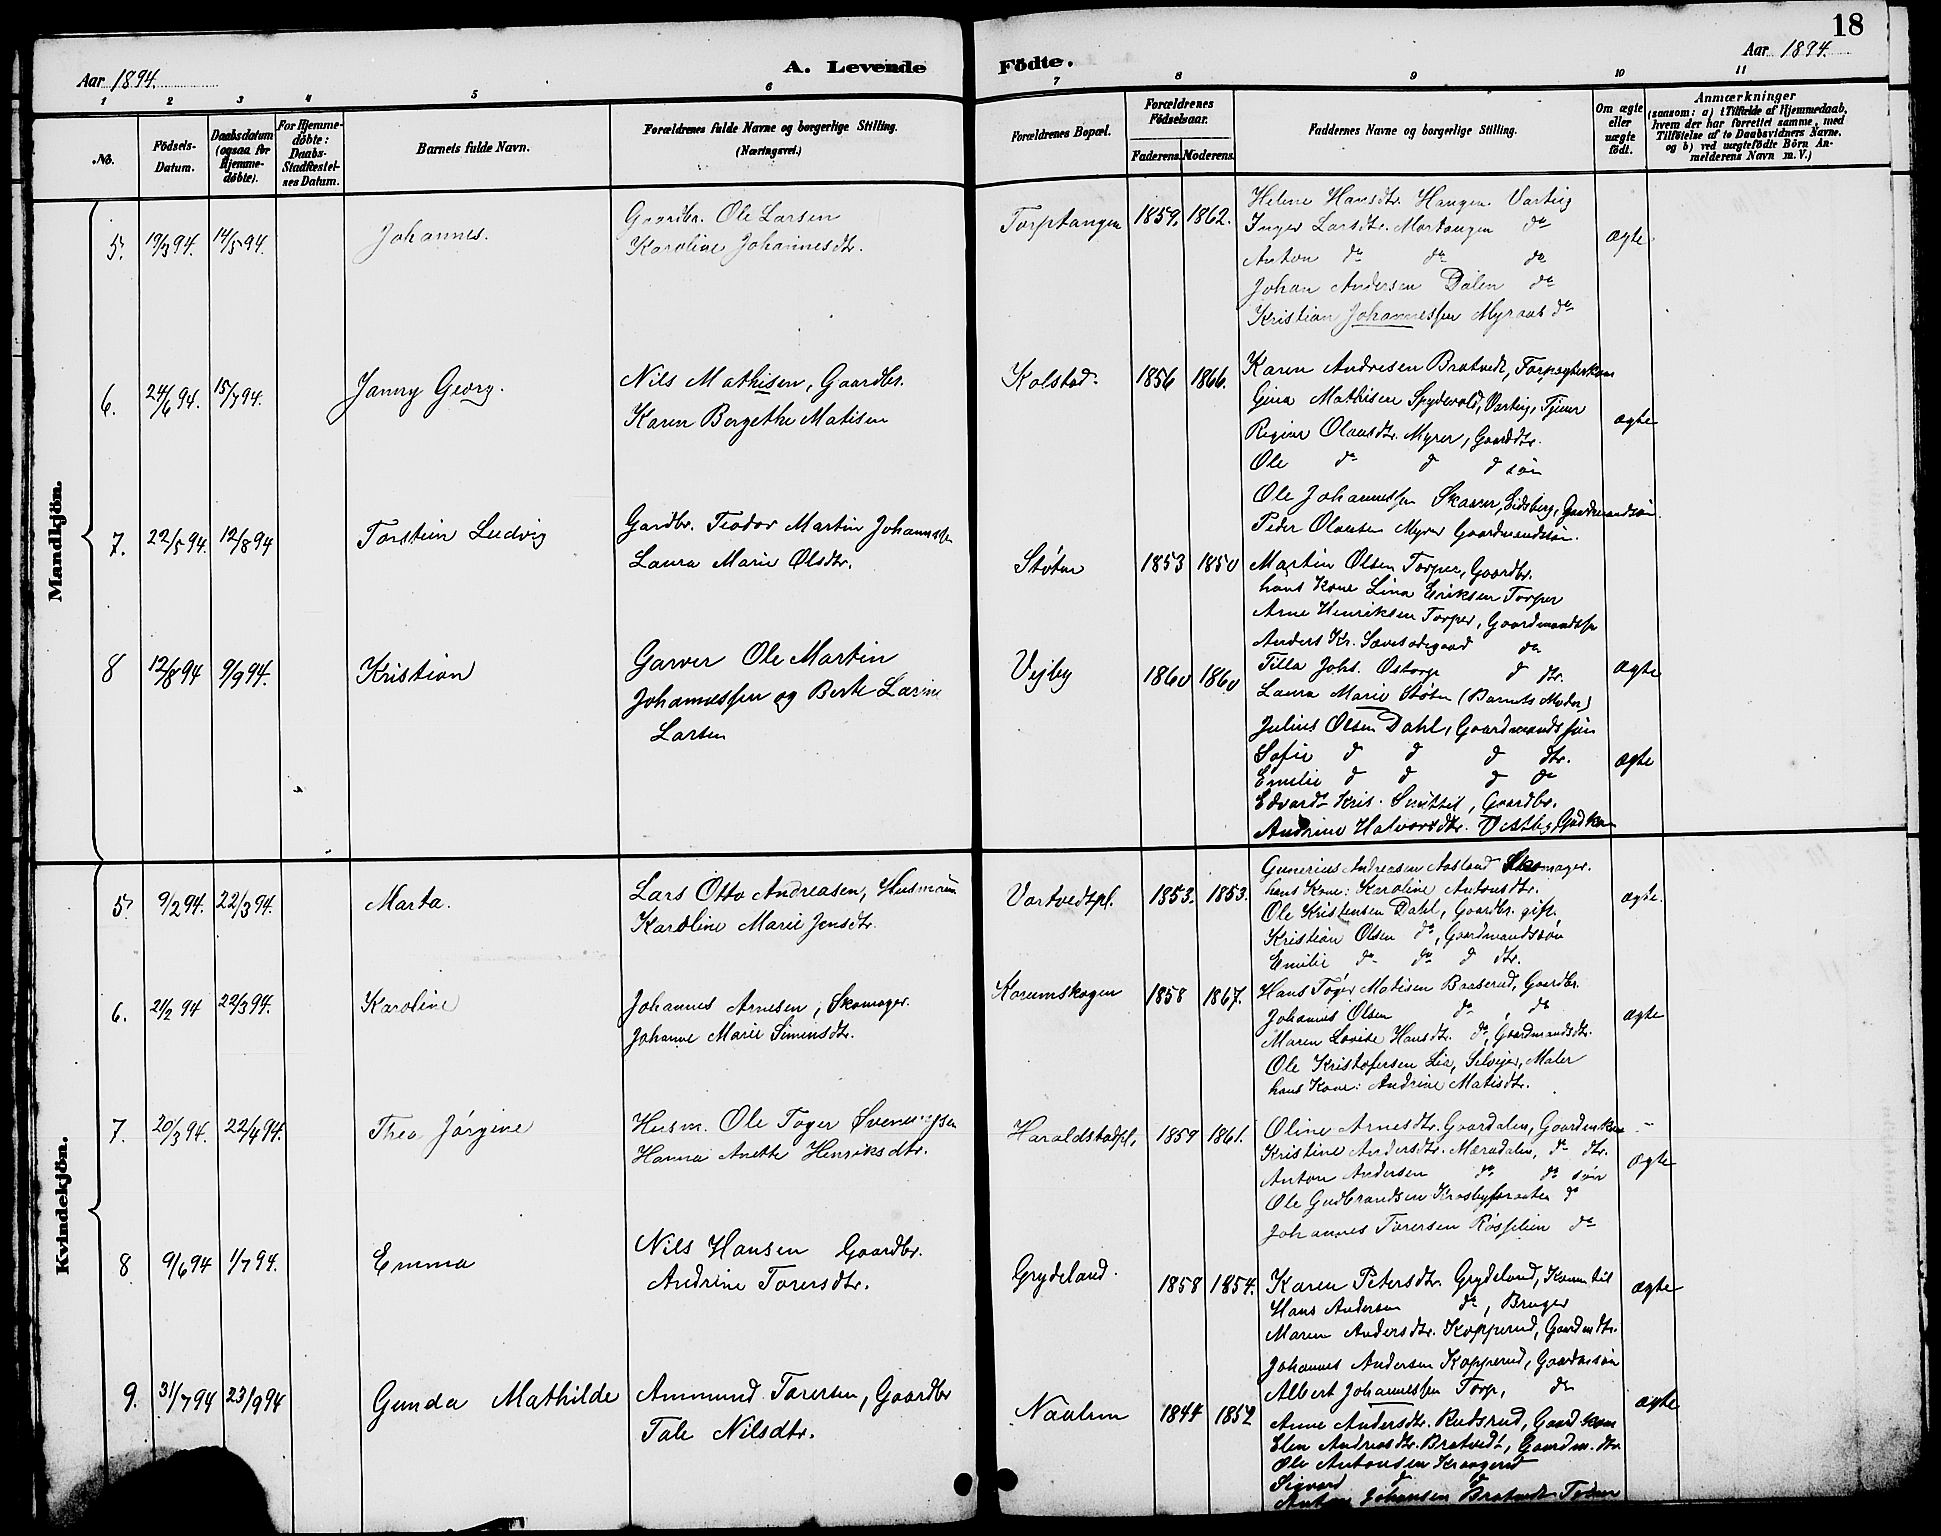 18
Aar 1894.
A. Levende Fødte.
Aar 1894.
1 2 3 4 5 6 7 8 9 10 11
No.
Fødsels-Datum.
Daabsdatum (ogsaa for Hjemmedøbte).
For Hjemmedøbte: Daabs-Stadfæstelses Datum.
Barnets fulde Navn.
Forældrenes fulde Navne og borgerlige Stilling. (Næringsvei.)
Forældrenes Bopæl.
Forældrenes Fødselsaar.
Faderens. Moderens.
Faddernes Navne og borgerlige Stilling.
Om ægte eller uægte født.
Anmærkninger
(saasom: a) i Tilfælde af Hjemmedaab, hvem der har forrettet samme, med Tilføielse af to Daabsvidners Navne. og b) ved uægtefødte Börn Anmelderens Navn m. V.)
Mandkjön.
5. 19/3 94. 14/5 94. Johannes.
Gaardbr. Ole Larsen
Karoline Johannesdtr.
Torptangen 1859. 1862.
Helene Hansdtr. Haugen Varteig
Inger Larsdtr. Mortangen do
Anton do do do
Johan Andersen Dalen do
Kristian Johannessen Myraas do
ægte.
6. 24/6 94. 15/7 94. Janny Georg.
Nils Mathisen, Gaardbr.
Karen Bergethe Matisen
Kolstad. 1856 1866.
Karen Andresen Bratvedt,
Gina Mathisen Spydevold, Varteig, Tjener
Regine Olausdtr. Myrer, Gaarddtr.
Ole do d d søn
Ole Johannessen Skarrer, Eidsberg, Gaardmandssøn.
Peder Olausen Myrer Gaardmandssøn.
ægte
7. 22/5 94. 12/8 94 Torstein Ludvig
Gardbr. Teodor Martin Johannessen
Laura Marie Olsdtr.
Støten 1853 1850
Martin Olsen Torper, Gaardbr.
hans Kone Lina Eriksen Torper
Arne Henriksen Torper, Gaardmandss
Anders Kr. do
Tilla Johs. Østorp d dtr.
Laura Marie Støten (Barnets Moder)
ægte
8 12/8 94 9/9 94. Kristian
Garver Ole Martin
Johannessen og Berte Larine
Larsen
Vejby 1860 1860
Julius Olsen Dahl, Gaardmandssøn
Sofie d d d dtr.
Emilie d d d do
Edvardt Kris. , Gaardbr.
Andrine Halvorsdtr. Vestby
ægte
Kvindekjön.
5. 9/2 94. 22/3 94. Marta.
Lars Otto Andreasen, Husmann
Karoline Marie Jensdtr.
Vartvedtpl. 1853. 1853.
Gunerius Andreasen Aasland Skomager.
hans Kone: Karoline Antonsdtr.
Ole Kristensen Dahl, Gaardbr. gift.
Kristian Olsen do, Gaardmandssøn
Emilie do do d dtr.
ægte.
6. 21/2 94 22/3 94. Karoline
Johannes Arnesen, Skomager.
Johanne Marie Simensdtr.
Korumskogen 1858 1867.
Hans Toger Matisen Braserud, Gaardbr.
Johannes Olsen do, do
Maren Lovise Hansdtr. do, Gaardmandsdtr.
Ole Kristofersen Lia, Selvejer, Maler
hans Kone: Andrine Matisdtr.
ægte
7. 20/3 94. 22/4 94. Thea Jørgine
Husm. Ole Toger Svenungsen
Hanna Anette Henriksdtr.
Haraldstadpl. 1859 1861.
Oline Arnesdtr. Gaardalen,
Kristine Andersdtr. Mæradalen, do dtr.
Anton Andersen do do søn
Ole Gudbrandsen do
Johannes Torersen do
ægte
8 9/6 94 1/7 94. Emma
Nils Hansen Gaardbr.
Andrine Torersdtr.
Grydeland. 1858 1854.
Karen Petersdtr. Grydeland, Kone til
Hans Andersen do, Bruger
Maren Andersdtr. Kopperud, Gaardm dtr.
Johannes Andersen Kopperud, Gaardm søn
Albert Johannessen Torp, do
ægte
9. 31/7 94 23/9 94 Gunda Mathilde
Ammund Torersen, Gaardbr
Tale Nilsdtr.
Naalum 1844 1852
Anne Andersdtr. Rudsrud, Gaardkone
Elen Andreasdtr. Bratvedt, Gaardm. dtr
Ole Antonsen Kraagerud
Sigvard d d
Anton Johansen Bratvedt Tjener
ægte